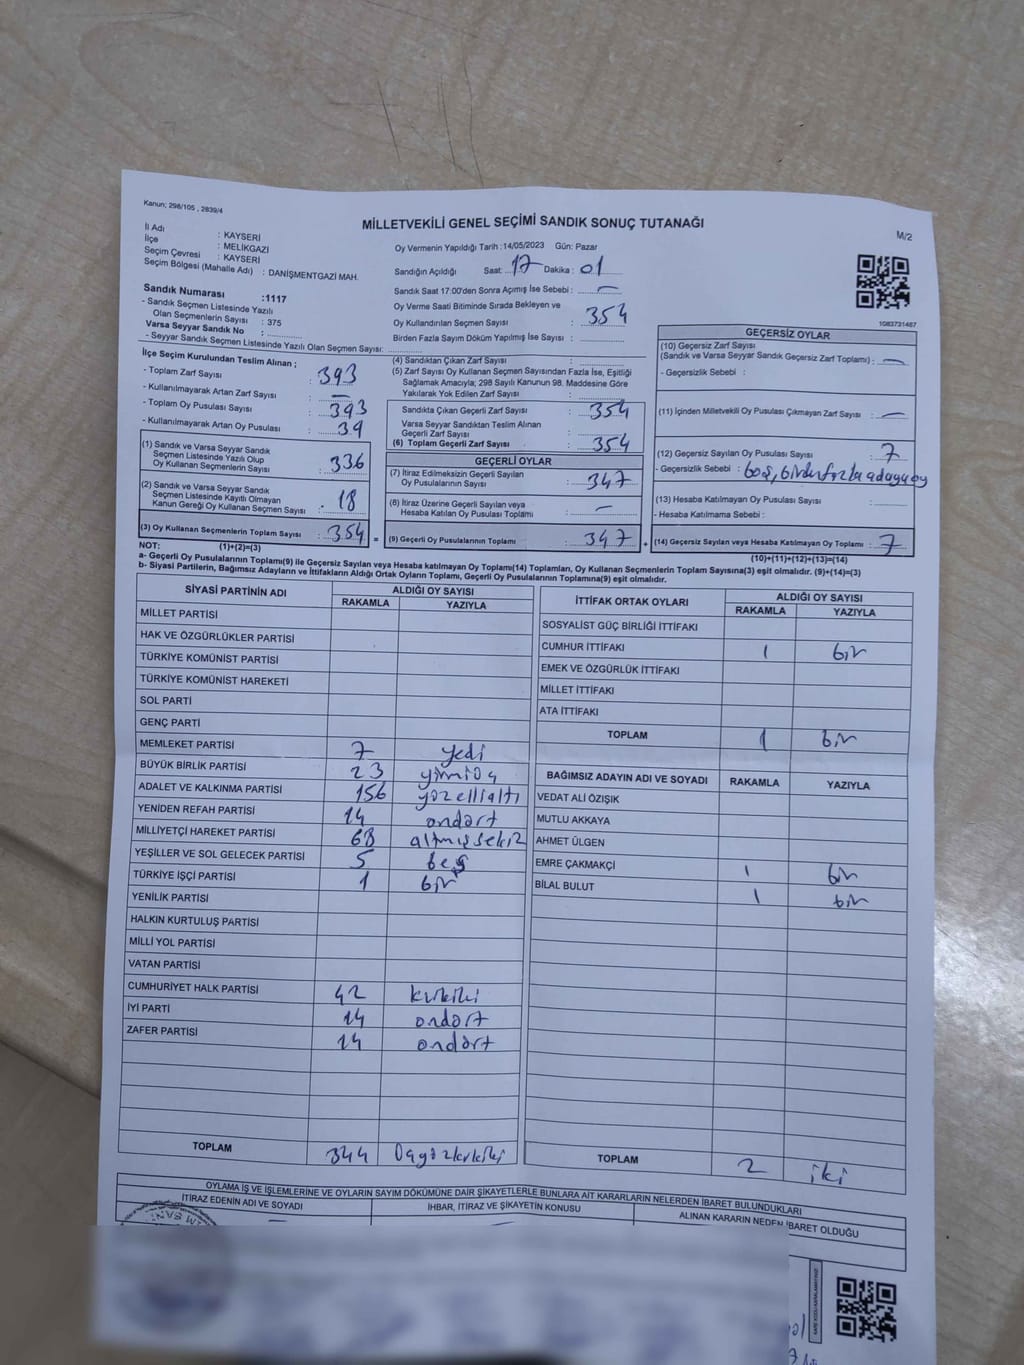 Kanun; 298/105 , 2839/4
MİLLETVEKİLİ GENEL SEÇİMİ SANDIK SONUÇ TUTANAĞI
M/2
İl Adı : KAYSERİ
İlçe : MELİKGAZİ
Seçim Çevresi : KAYSERİ
Seçim Bölgesi (Mahalle Adı) : DANİŞMENTGAZİ MAH.
Sandık Numarası :1117
- Sandık Seçmen Listesinde Yazılı
Olan Seçmenlerin Sayısı : 375
Varsa Seyyar Sandık No :
- Seyyar Sandık Seçmen Listesinde Yazılı Olan Seçmen Sayısı:
Oy Vermenin Yapıldığı Tarih :14/05/2023 Gün: Pazar
Sandığın Açıldığı Saat: 17 Dakika : 01
Sandık Saat 17:00'den Sonra Açımış İse Sebebi : —
Oy Verme Saati Bitiminde Sırada Bekleyen ve
Oy Kullandırılan Seçmen Sayısı : 354
Birden Fazla Sayım Döküm Yapılmış İse Sayısı :
1083731487
İlçe Seçim Kurulundan Teslim Alınan ;
- Toplam Zarf Sayısı : 393
- Kullanılmayarak Artan Zarf Sayısı : —
- Toplam Oy Pusulası Sayısı : 393
- Kullanılmayarak Artan Oy Pusulası : 39
(1) Sandık ve Varsa Seyyar Sandık
Seçmen Listesinde Yazılı Olup
Oy Kullanan Seçmenlerin Sayısı : 336
(2) Sandık ve Varsa Seyyar Sandık
Seçmen Listesinde Kayıtlı Olmayan
Kanun Gereği Oy Kullanan Seçmen Sayısı : 18
(3) Oy Kullanan Seçmenlerin Toplam Sayısı : 354 =
(4) Sandıktan Çıkan Zarf Sayısı :
(5) Zarf Sayısı Oy Kullanan Seçmen Sayısından Fazla İse, Eşitliği
Sağlamak Amacıyla; 298 Sayılı Kanunun 98. Maddesine Göre
Yakılarak Yok Edilen Zarf Sayısı :
Sandıkta Çıkan Geçerli Zarf Sayısı : 354
Varsa Seyyar Sandıktan Teslim Alınan
Geçerli Zarf Sayısı :
(6) Toplam Geçerli Zarf Sayısı : 354
GEÇERLİ OYLAR
(7) İtiraz Edilmeksizin Geçerli Sayılan
Oy Pusulalarının Sayısı : 347
(8) İtiraz Üzerine Geçerli Sayılan veya
Hesaba Katılan Oy Pusulası Toplamı : —
(9) Geçerli Oy Pusulalarının Toplamı : 347 +
GEÇERSİZ OYLAR
(10) Geçersiz Zarf Sayısı
(Sandık ve Varsa Seyyar Sandık Geçersiz Zarf Toplamı) : —
- Geçersizlik Sebebi :
(11) İçinden Milletvekili Oy Pusulası Çıkmayan Zarf Sayısı : —
(12) Geçersiz Sayılan Oy Pusulası Sayısı : 7
- Geçersizlik Sebebi : boş, birden fazla adaya oy
(13) Hesaba Katılmayan Oy Pusulası Sayısı :
- Hesaba Katılmama Sebebi :
(14) Geçersiz Sayılan veya Hesaba Katılmayan Oy Toplamı : 7
NOT: (1)+(2)=(3)
(10)+(11)+(12)+(13)=(14)
a- Geçerli Oy Pusulalarının Toplamı(9) ile Geçersiz Sayılan veya Hesaba katılmayan Oy Toplamı(14) Toplamları, Oy Kullanan Seçmenlerin Toplam Sayısına(3) eşit olmalıdır. (9)+(14)=(3)
b- Siyasi Partilerin, Bağımsız Adayların ve İttifakların Aldığı Ortak Oyların Toplamı, Geçerli Oy Pusulalarının Toplamına(9) eşit olmalıdır.
SİYASİ PARTİNİN ADI ALDIĞI OY SAYISI
RAKAMLA YAZIYLA
MİLLET PARTİSİ
HAK VE ÖZGÜRLÜKLER PARTİSİ
TÜRKİYE KOMÜNİST PARTİSİ
TÜRKİYE KOMÜNİST HAREKETİ
SOL PARTİ
GENÇ PARTİ
MEMLEKET PARTİSİ 7 yedi
BÜYÜK BİRLİK PARTİSİ 23 yirmiüç
ADALET VE KALKINMA PARTİSİ 156 yüzellialtı
YENİDEN REFAH PARTİSİ 14 ondört
MİLLİYETÇİ HAREKET PARTİSİ 68 altmışsekiz
YEŞİLLER VE SOL GELECEK PARTİSİ 5 beş
TÜRKİYE İŞÇİ PARTİSİ 1 bir
YENİLİK PARTİSİ
HALKIN KURTULUŞ PARTİSİ
MİLLİ YOL PARTİSİ
VATAN PARTİSİ
CUMHURİYET HALK PARTİSİ 42 kırkiki
İYİ PARTİ 14 ondört
ZAFER PARTİSİ 14 ondört
TOPLAM 344
İTTİFAK ORTAK OYLARI ALDIĞI OY SAYISI
RAKAMLA YAZIYLA
SOSYALİST GÜÇ BİRLİĞİ İTTİFAKI
CUMHUR İTTİFAKI 1 bir
EMEK VE ÖZGÜRLÜK İTTİFAKI
MİLLET İTTİFAKI
ATA İTTİFAKI
TOPLAM 1 bir
BAĞIMSIZ ADAYIN ADI VE SOYADI RAKAMLA YAZIYLA
VEDAT ALİ ÖZIŞIK
MUTLU AKKAYA
AHMET ÜLGEN
EMRE ÇAKMAKÇİ 1 bir
BİLAL BULUT 1 bir
TOPLAM 2 iki
OYLAMA İŞ VE İŞLEMLERİNE VE OYLARIN SAYIM DÖKÜMÜNE DAİR ŞİKAYETLERLE BUNLARA AİT KARARLARIN NELERDEN İBARET BULUNDUKLARI
İTİRAZ EDENİN ADI VE SOYADI İHBAR, İTİRAZ VE ŞİKAYETİN KONUSU ALINAN KARARIN NEDEN İBARET OLDUĞU